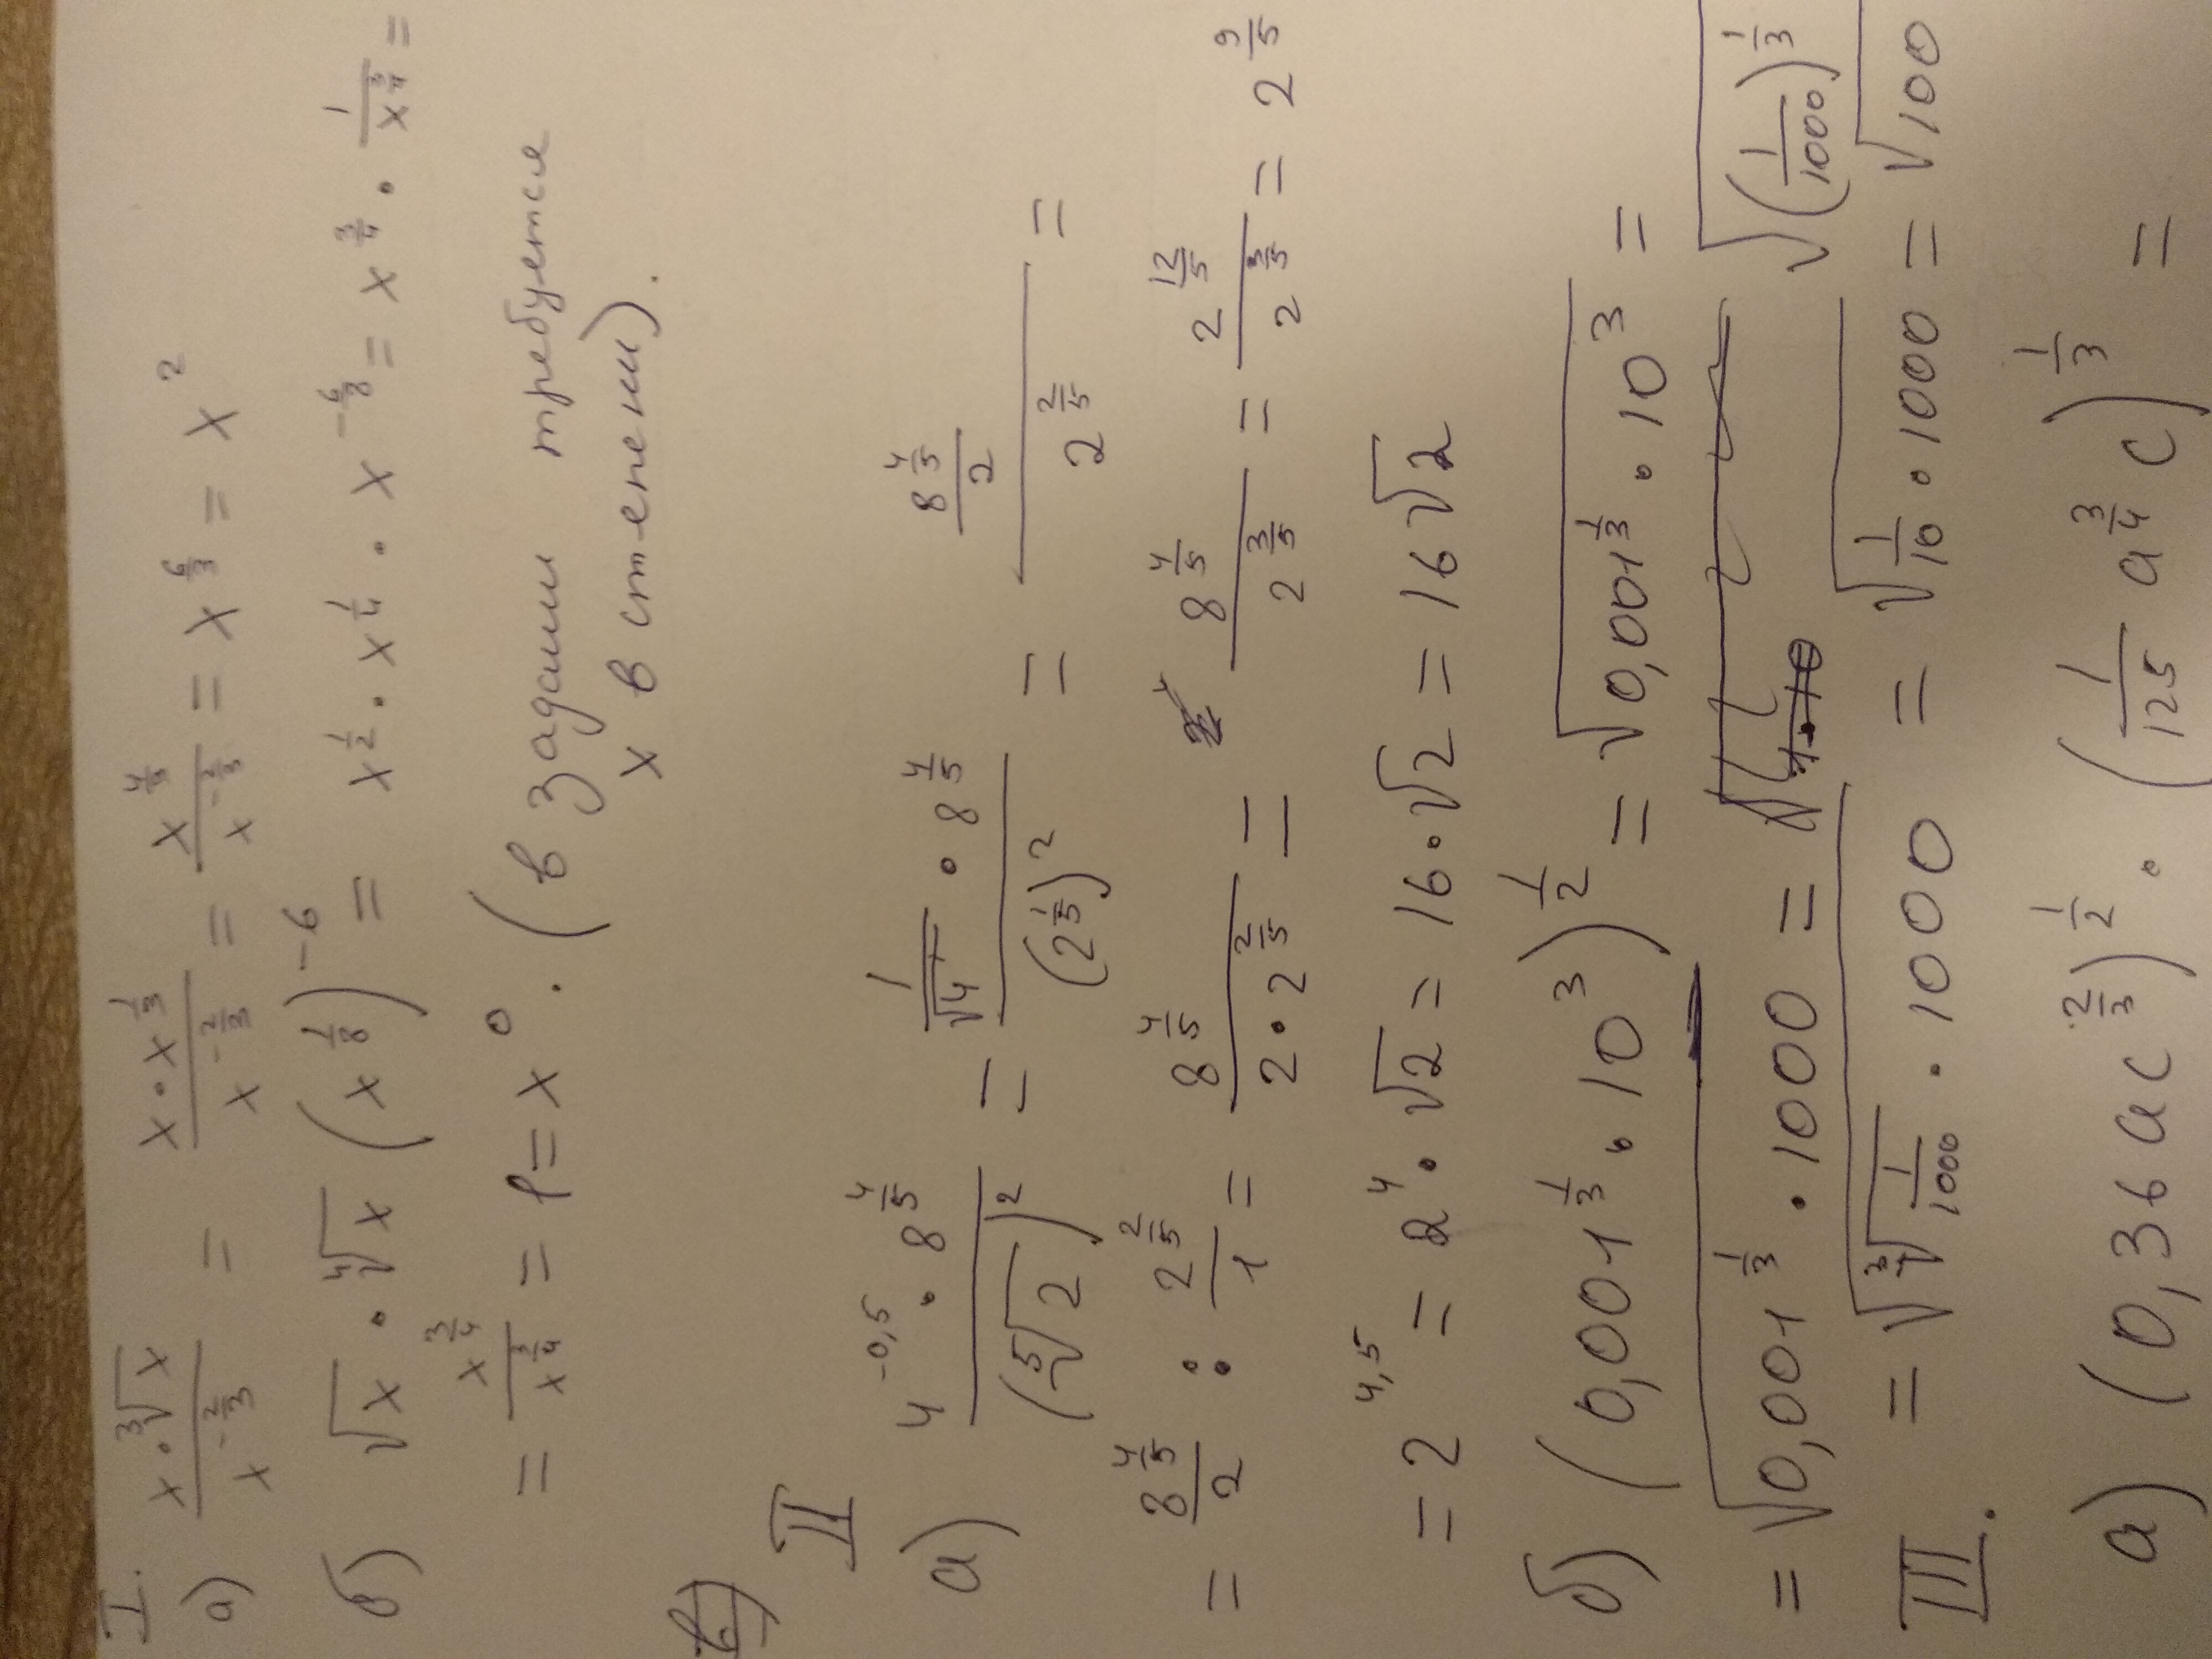 I.
а) x·∛x / x^(-2/3) = x·x^(1/3) / x^(-2/3) = x^(4/3) / x^(-2/3) = x^(6/3) = x²
б) √x · ⁴√x (x^(1/8))^(-6) = x^(1/2) · x^(1/4) · x^(-6/8) = x^(3/4) · 1/x^(3/4) =
= x^(3/4) / x^(3/4) = 1 = x⁰. (в задании требуется
x в степени).
II
а) 4^(-0,5) · 8^(4/5) / (⁵√2)² = (1/√4 · 8^(4/5)) / (2^(1/5))² = (8^(4/5) / 2) / 2^(2/5) =
= 8^(4/5)/2 : 2^(2/5)/1 = 8^(4/5) / (2·2^(2/5)) = 8^(4/5) / 2^(3/5) = 2^(12/5) / 2^(3/5) = 2^(9/5)
= 2^(4,5) = 2⁴ · √2 = 16·√2 = 16√2
б) (0,001^(1/3) · 10³)^(1/2) = √(0,001^(1/3) · 10³) =
= √(0,001^(1/3) · 1000) = √((1/1000)^(1/3)
= √(∛(1/1000) · 1000) = √(1/10 · 1000) = √100
III.
а) (0,36ac^(2/3))^(1/2) · (1/125 a^(3/4) c)^(1/3) =